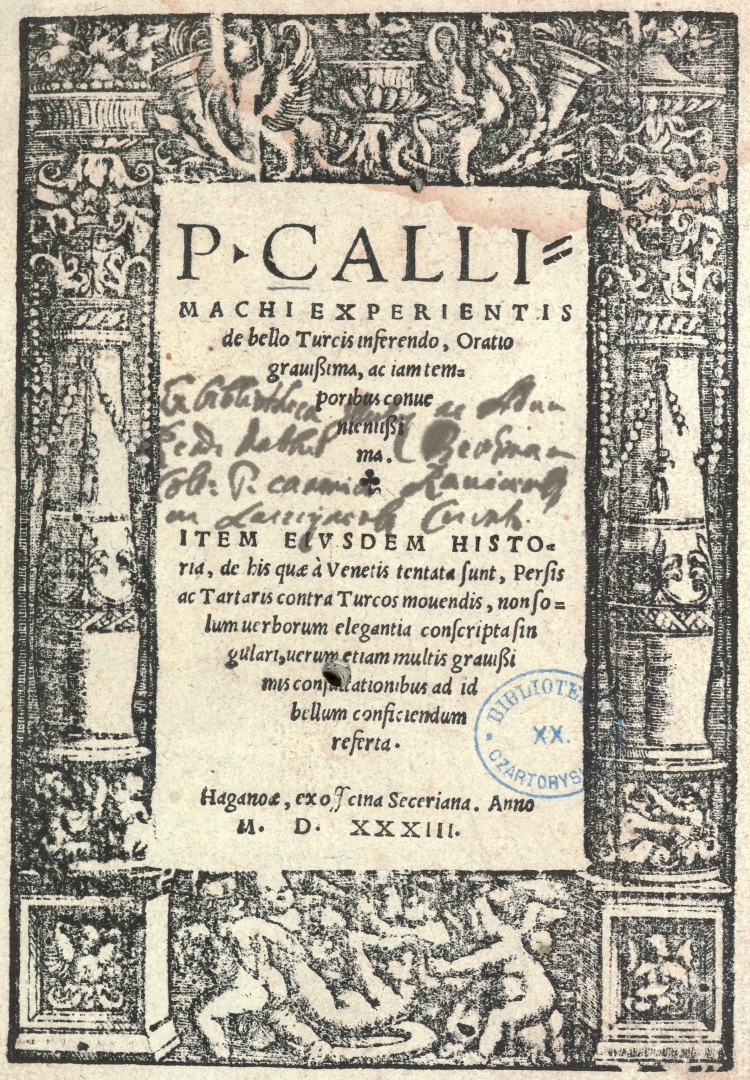 P▸CALLI=
MACHI EXPERIENTIS
de bello Turcis inferendo, Oratio
grauißima, ac iam tem=
poribus conue
nientißi
ma.
Ex bibliotheca
ITEM EIVSDEM HISTO=
ria, de his quæ à Venetis tentata sunt, Persis
ac Tartaris contra Turcos mouendis, non so=
lum uerborum elegantia conscripta sin
gulari, uerum etiam multis grauißi
mis consultationibus ad id
bellum conficiendum
referta.
BIBLIOTE
XX.
CZARTORYS
Haganoæ, ex officina Seceriana. Anno
M. D. XXXIII.